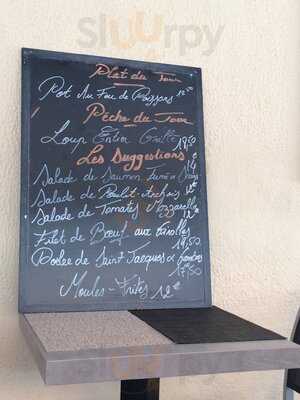 Sluurpy
Plat du Jour
Pot Au Feu de Poissons
Pêche du Jour
Loup Entier Grillé
Les Suggestions
Salade de Saumon Fumé
Salade de Poulet-Anchois
Salade de Tomates Mozzarella
12
Filet de Bœuf aux Girolles
Poelée de Saint Jacques
17,50
Moules-Frites 12€